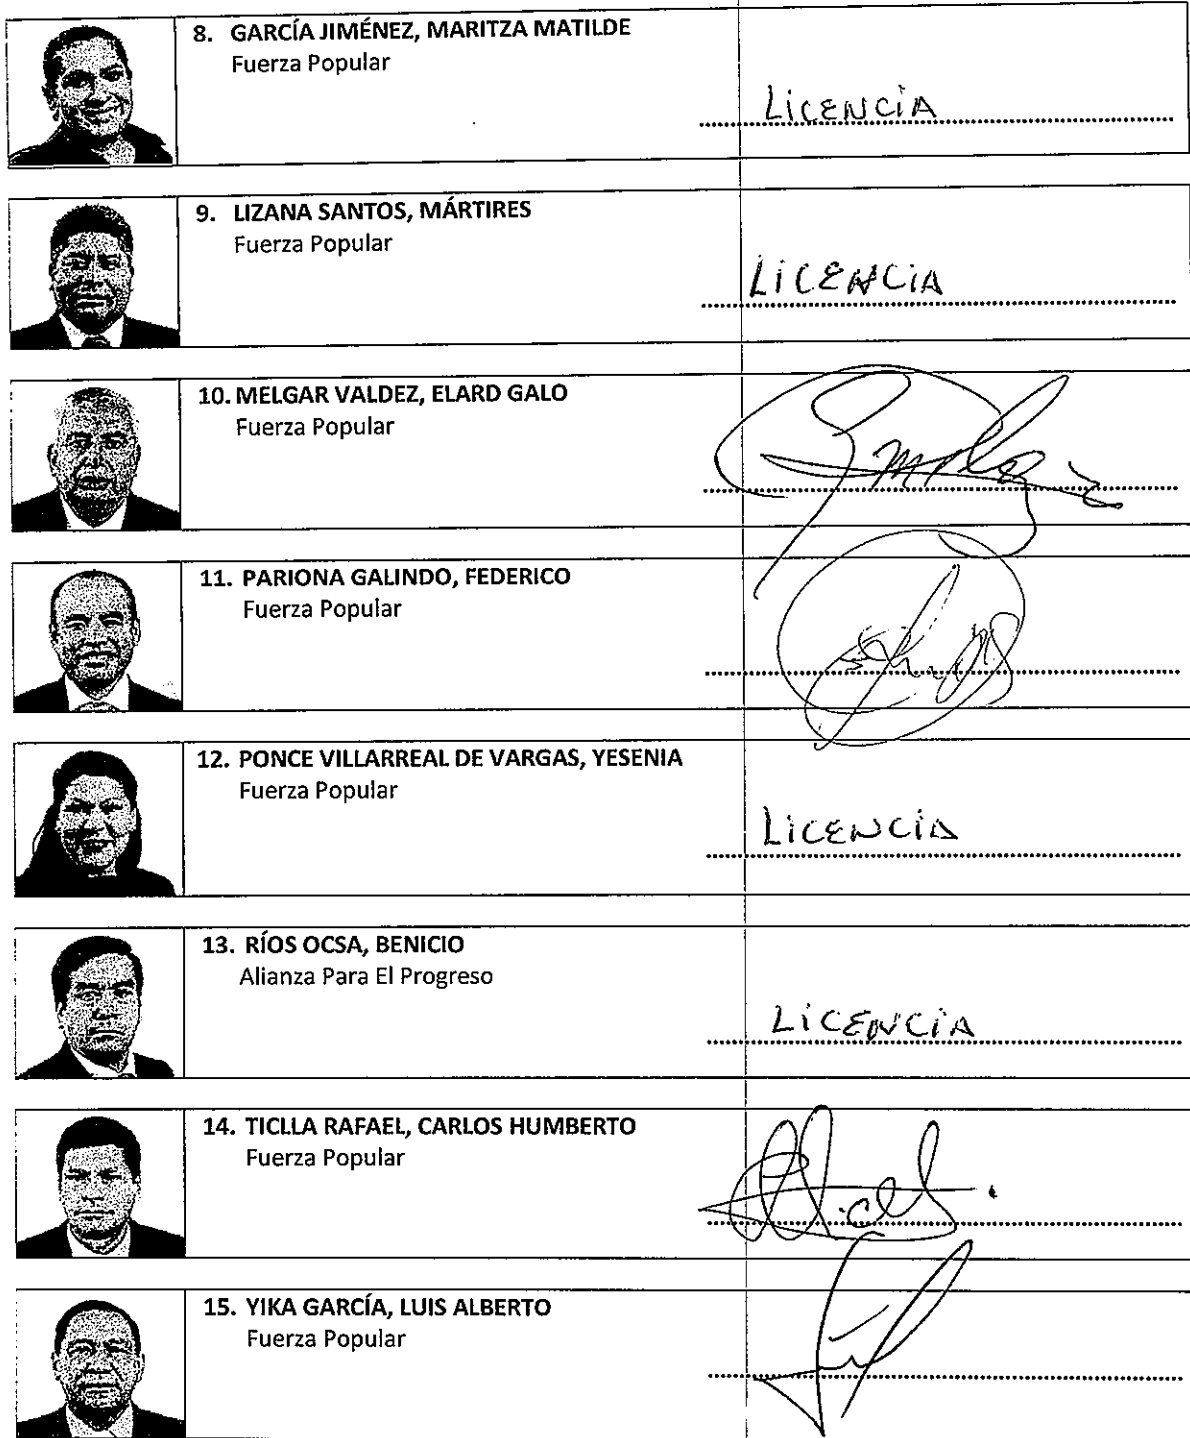 8. GARCÍA JIMÉNEZ, MARITZA MATILDE
Fuerza Popular
LiCENCiA
9. LIZANA SANTOS, MÁRTIRES
Fuerza Popular
LiCENCiA
10. MELGAR VALDEZ, ELARD GALO
Fuerza Popular
11. PARIONA GALINDO, FEDERICO
Fuerza Popular
12. PONCE VILLARREAL DE VARGAS, YESENIA
Fuerza Popular
LiCENCiA
13. RÍOS OCSA, BENICIO
Alianza Para El Progreso
LiCENCiA
14. TICLLA RAFAEL, CARLOS HUMBERTO
Fuerza Popular
15. YIKA GARCÍA, LUIS ALBERTO
Fuerza Popular